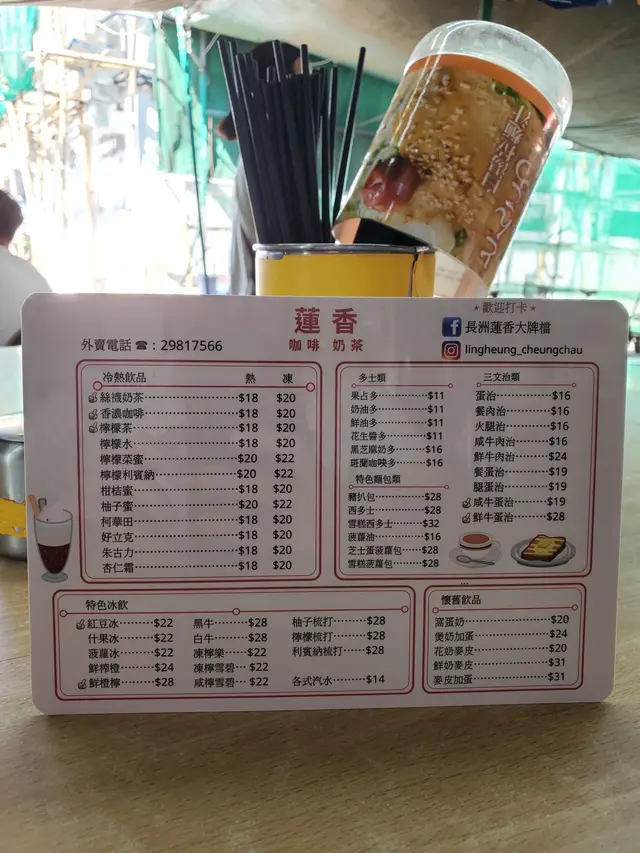 蓮香
咖啡 奶茶
外賣電話 ☎ : 29817566
★ 歡迎打卡 ★
長洲蓮香大牌檔
lingheung_cheungchau
冷熱飲品 熱 凍
絲襪奶茶 $18 $20
香濃咖啡 $18 $20
檸檬茶 $18 $20
檸檬水 $18 $20
檸檬菜蜜 $20 $22
檸檬利賓納 $20 $22
柑桔蜜 $18 $20
柚子蜜 $20 $22
柯華田 $18 $20
好立克 $18 $20
朱古力 $18 $20
杏仁霜 $18 $20
多士類
果占多 $11
奶油多 $11
鮮油多 $11
花生醬多 $11
黑芝麻奶多 $16
斑蘭咖央多 $16
特色麵包類
豬扒包 $28
西多士 $28
雪糕西多士 $32
菠蘿油 $16
芝士蛋菠蘿包 $28
雪糕菠蘿包 $28
三文治類
蛋治 $16
餐肉治 $16
火腿治 $16
咸牛肉治 $16
鮮牛肉治 $24
餐蛋治 $19
腿蛋治 $19
咸牛蛋治 $19
鮮牛蛋治 $28
特色冰飲
紅豆冰 $22
什果冰 $22
菠蘿冰 $22
鮮榨橙 $24
鮮橙檸 $28
黑牛 $28
白牛 $28
凍檸樂 $22
凍檸雪碧 $22
咸檸雪碧 $22
柚子梳打 $28
檸檬梳打 $28
利賓納梳打 $28
各式汽水 $14
懷舊飲品
窩蛋奶 $20
煲奶加蛋 $24
花奶麥皮 $20
鮮奶麥皮 $31
麥皮加蛋 $31